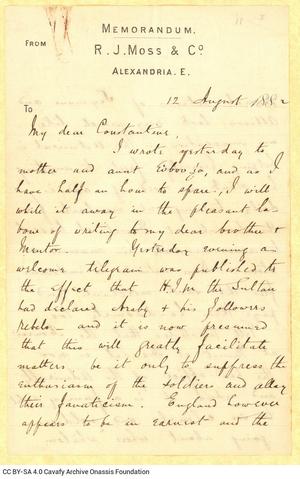 MEMORANDUM.
FROM
R. J. MOSS & Co.
ALEXANDRIA. E.
12 August 1882
TO
My dear Constantine,
I wrote yesterday to
mother and aunt
have half an hour to spare, I will
while it away in the pleasant la-
bour of writing to my dear brother &
Mentor. Yesterday evening a
welcome telegram was published to
the effect that H.I.M. the Sultan
had declared Araby & his followers
rebels — and it is now presumed
that this will greatly facilitate
matters be it only to suppress the
enthusiasm of the soldiers and allay
their fanaticism. England however
appears to be in earnest and the
CC BY-SA 4.0 Cavafy Archive Onassis Foundation